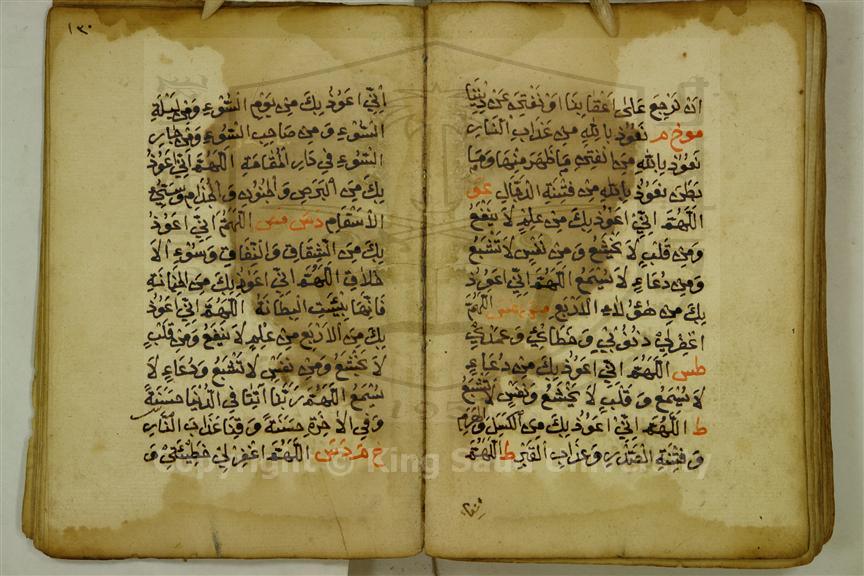 ان نرجع على اعقابنا او نفتن عن ديننا
موخ م نعوذ بالله من عذاب النار
نعوذ بالله من الفتن ما ظهر منها وما
بطن نعوذ بالله من فتنة الدجال عو
اللهم اني اعوذ بك من علم لا ينفع
ومن قلب لا يخشع ومن نفس لا تشبع
ومن دعاء لا يسمع اللهم اني اعوذ
بك من هؤلاء الاربع مص عس اللهم
اغفر لي ذنوبي وخطائي وعمدي
طس اللهم اني اعوذ بك من دعاء
لا يسمع و قلب لا يخشع ونفس لا تشبع
ط اللهم اني اعوذ بك من الكسل والهرم
و فتنة الصدر وعذاب القبر ط اللهم
١٣٠
اني اعوذ بك من يوم السوء ومن ليلة
السوء ومن صاحب السوء ومن جار
السوء في دار المقامة اللهم اني اعوذ
بك من البرص والجنون والجذام وسيئ
الاسقام دس مص اللهم اني اعوذ
بك من الشقاق والنفاق وسوء الا
خلاق اللهم اني اعوذ بك من الخيانة
فانها بئست البطانة اللهم اني اعوذ
بك من الاربع من علم لا ينفع ومن قلب
لا يخشع ومن نفس لا تشبع ودعاء لا
يسمع اللهم ربنا آتنا في الدنيا حسنة
وفي الاخرة حسنة وقنا عذاب النار
خ م دس اللهم اغفر لي خطيئتي و
Copyright © King Saud University